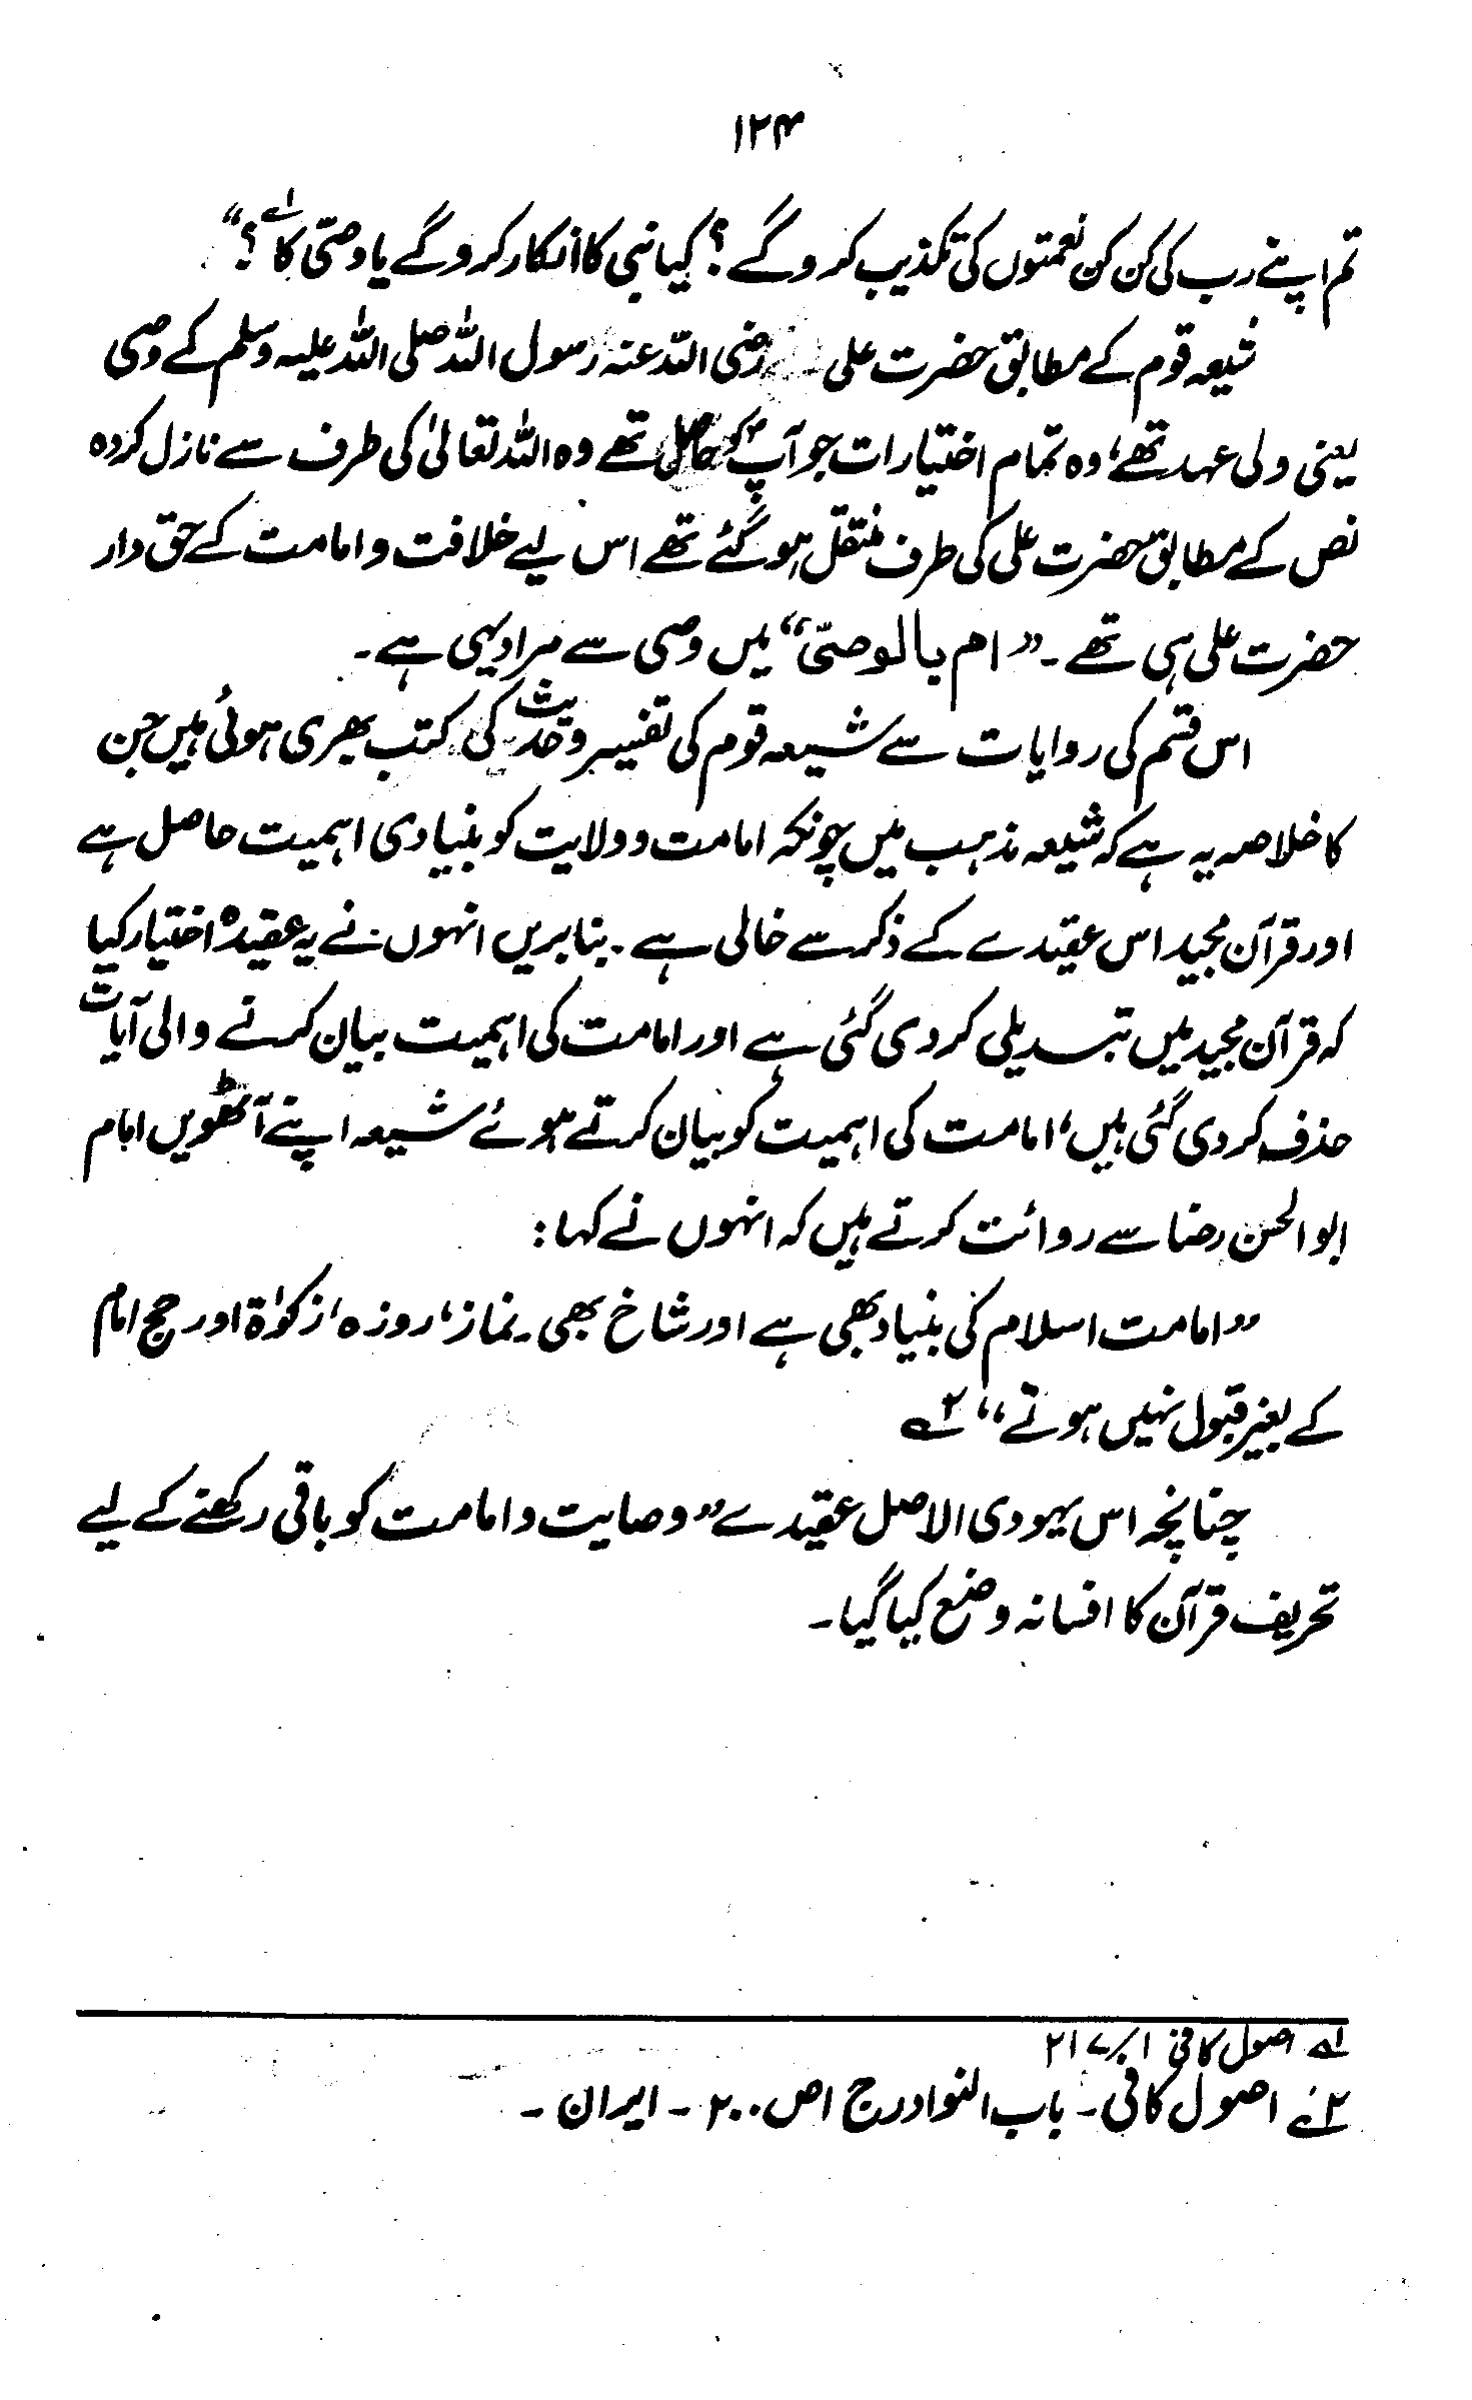 ۱۲۴
تم اپنے رب کی کن کن نعمتوں کی تکذیب کروگے؟ کیا نبی کا انکار کروگے یا وصیّ کا؟“ ۱ے
شیعہ قوم کے مطابق حضرت علی رضی اللہ عنہ رسول اللہ صلی اللہ علیہ وسلم کے وصی
یعنی ولی عہد تھے، وہ تمام اختیارات جو آپؐ کو حاصل تھے وہ اللہ تعالیٰ کی طرف سے نازل کردہ
نص کے مطابق حضرت علی کی طرف منتقل ہوگئے تھے اس لیے خلافت و امامت کے حق دار
حضرت علی ہی تھے۔ ”ام بالوصیّ“ میں وصی سے مراد یہی ہے۔
اس قسم کی روایات سے شیعہ قوم کی تفسیر وحدیث کی کتب بھری ہوئی ہیں جن
کا خلاصہ یہ ہے کہ شیعہ مذہب میں چونکہ امامت و ولایت کو بنیادی اہمیت حاصل ہے
اور قرآن مجید اس عقیدے کے ذکر سے خالی ہے۔ بنابریں انہوں نے یہ عقیدہ اختیار کیا
کہ قرآن مجید میں تبدیلی کردی گئی ہے اور امامت کی اہمیت بیان کرنے والی آیات
حذف کردی گئی ہیں، امامت کی اہمیت کو بیان کرتے ہوئے شیعہ اپنے آٹھویں امام
ابوالحسن رضا سے روائت کرتے ہیں کہ انہوں نے کہا:
”امامت اسلام کی بنیاد بھی ہے اور شاخ بھی۔ نماز، روزہ، زکوٰۃ اور حج امام
کے بغیر قبول نہیں ہوتے“ ۲ے
چنانچہ اس یہودی الاصل عقیدے ”وصایت و امامت کو باقی رکھنے کے لیے
تحریف قرآن کا افسانہ وضع کیا گیا۔
۱ے اصول کافی ۱/۲۱۷
۲ے اصول کافی۔ باب النوادر ج ۱ ص ۲۰۰۔ ایران۔